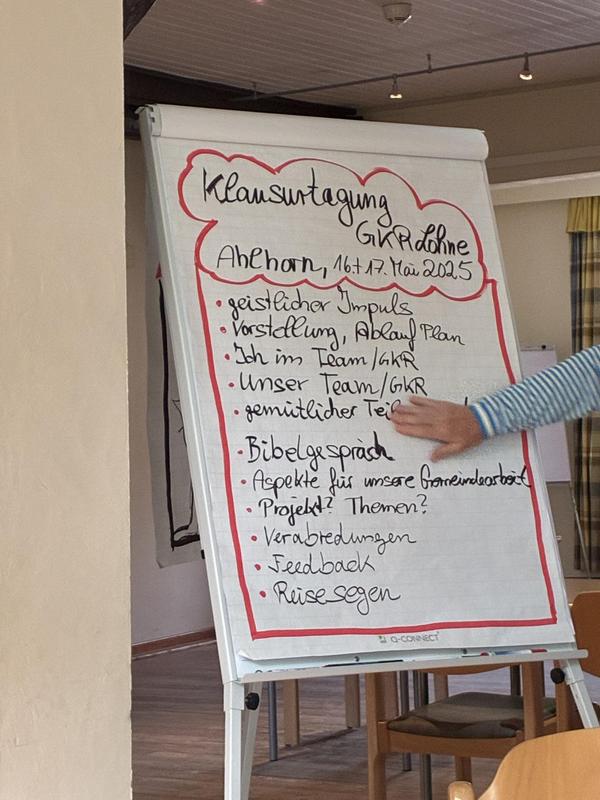 Klausurtagung
GKR Lohne
Ahlhorn, 16.+17. Mai 2025
• geistlicher Impuls
• Vorstellung, Ablauf Plan
• Ich im Team/GKR
• Unser Team/GKR
• gemütlicher
• Bibelgespräch
• Aspekte für unsere Gemeindearbeit
• Projekt? Themen?
• Verabredungen
• Feedback
• Reisesegen
Q-CONNECT